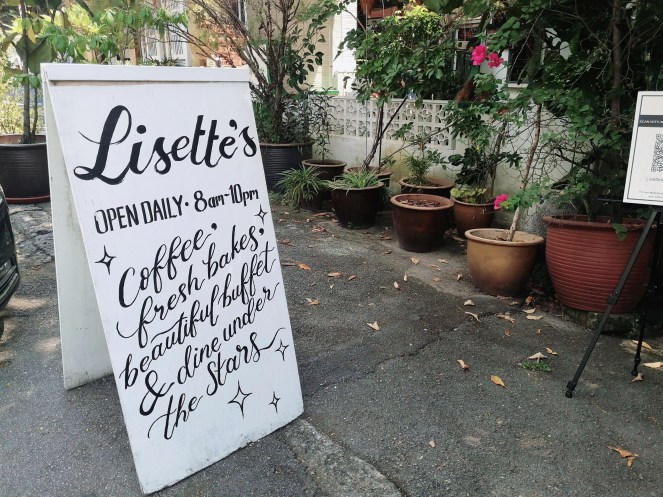 Lisette's
OPEN DAILY • 8am-10pm
Coffee,
fresh bakes,
beautiful buffet
& dine under
the Stars